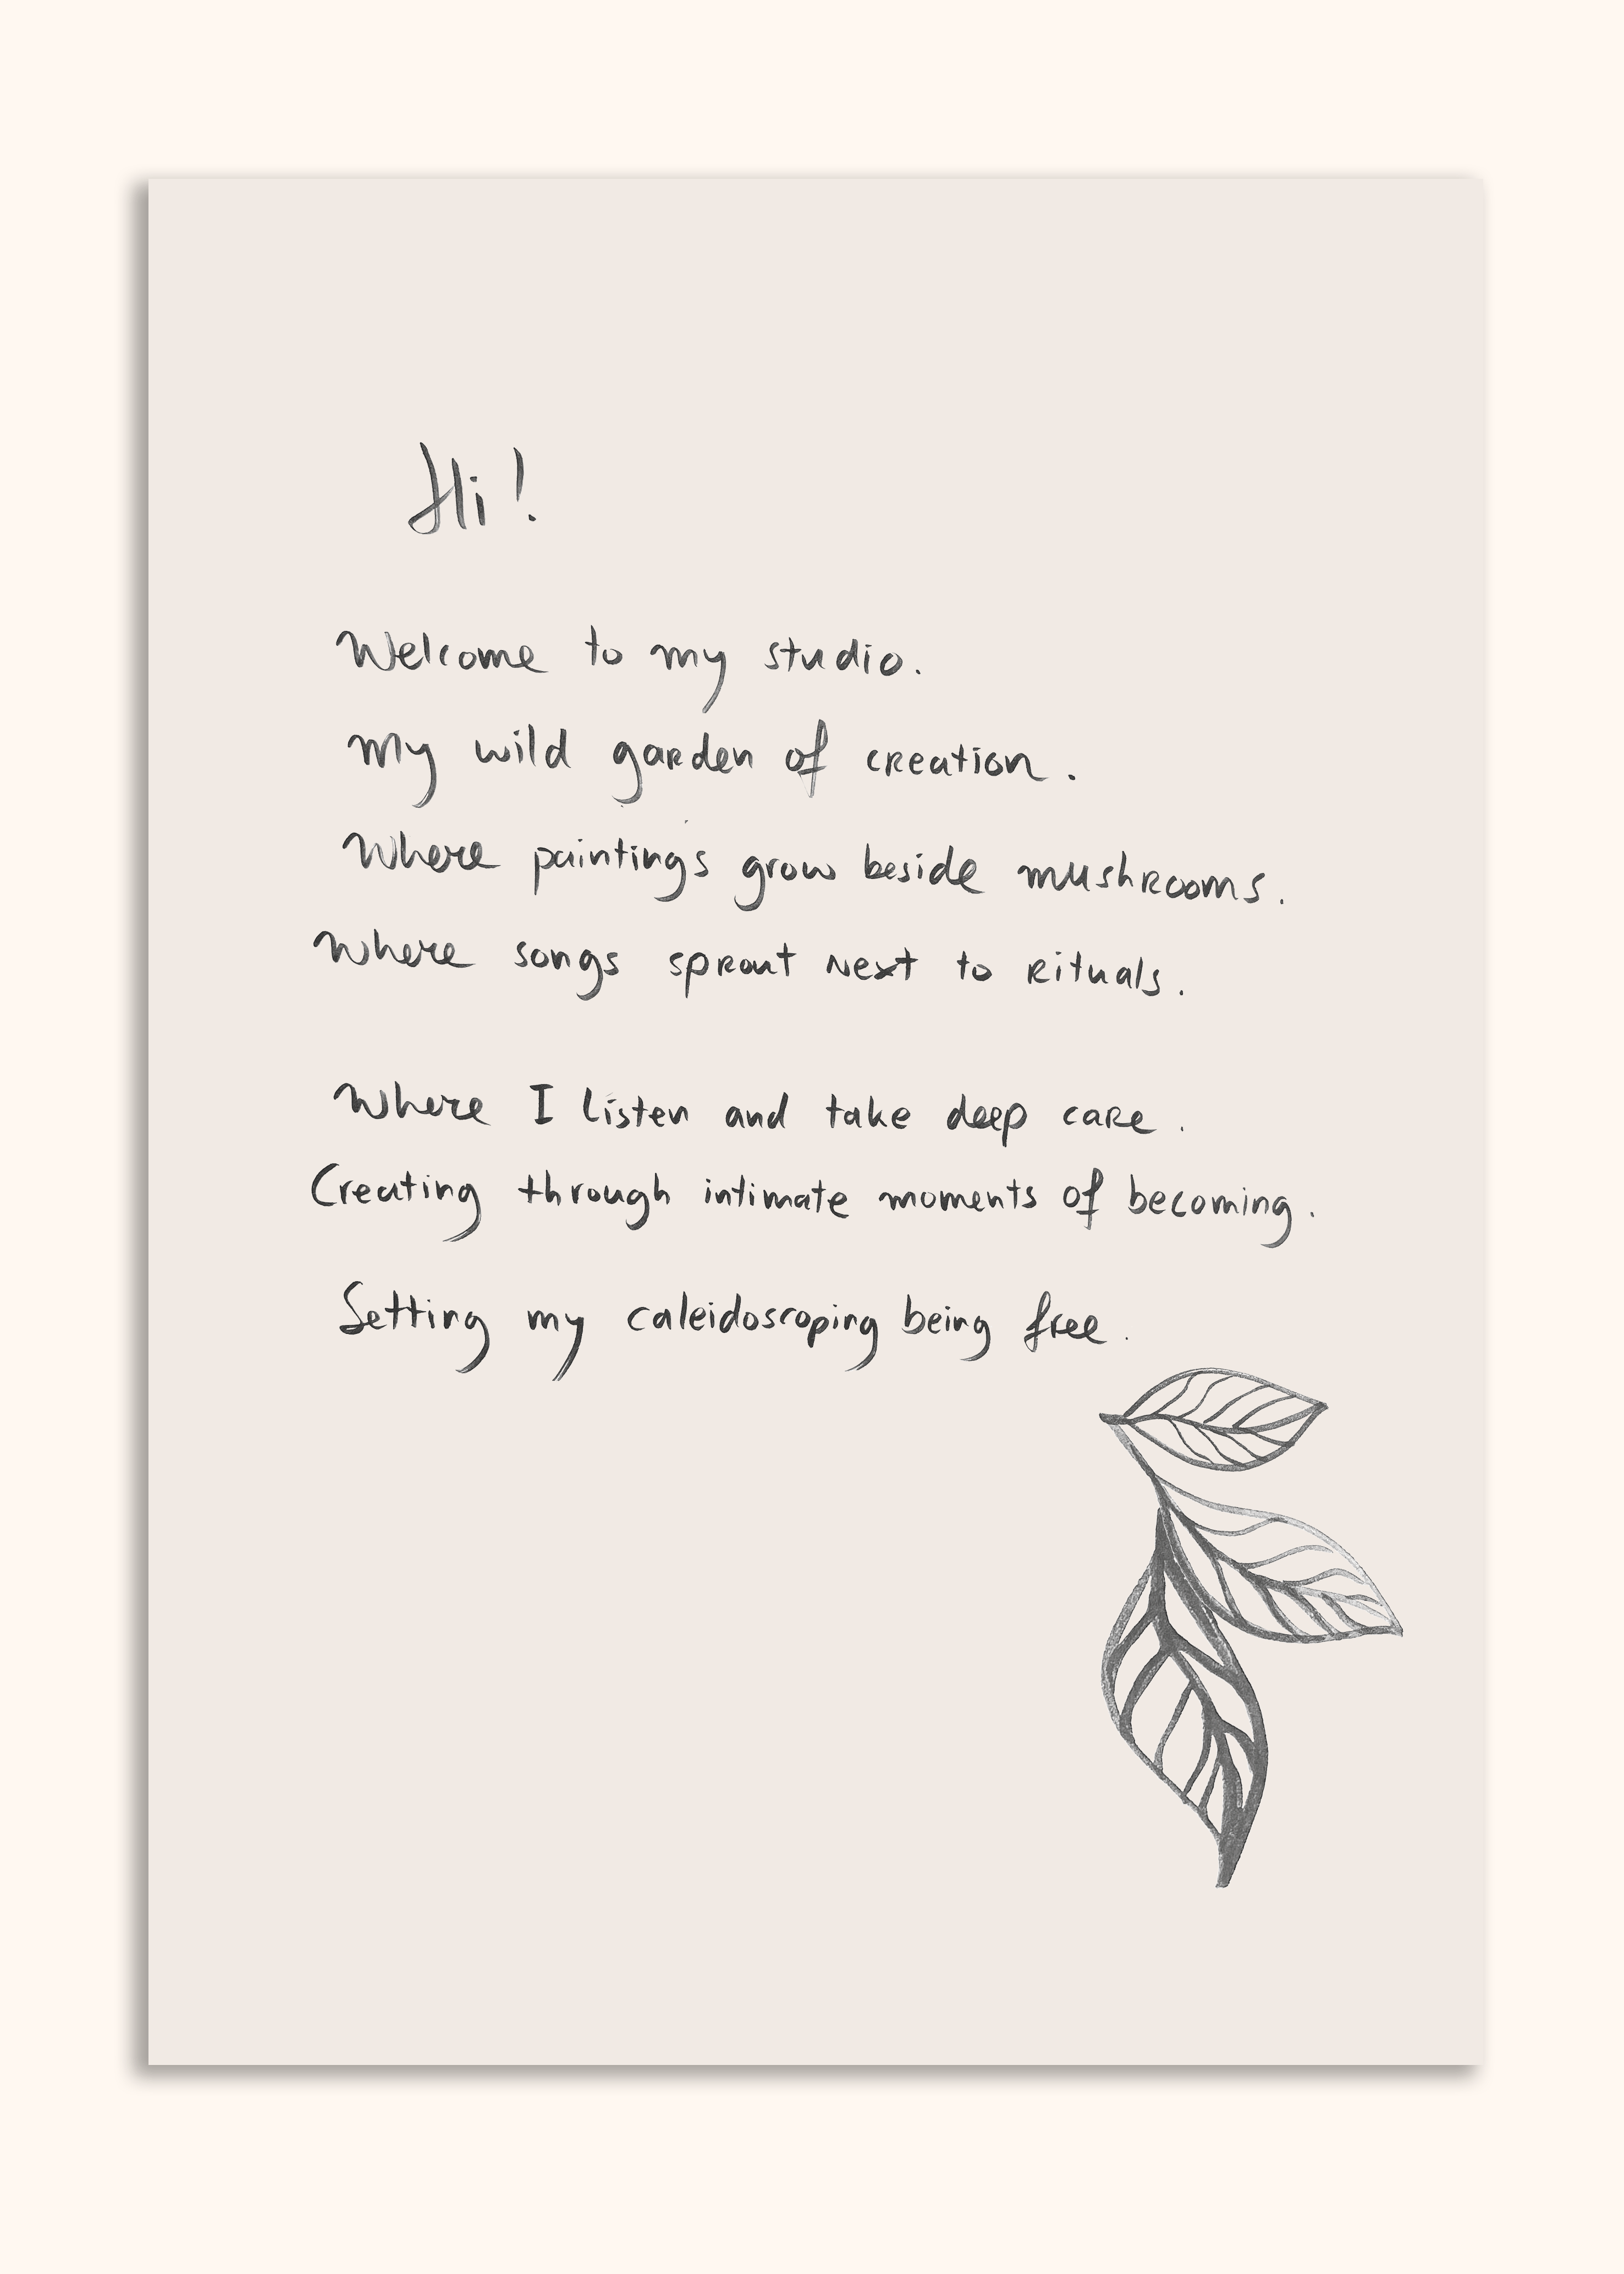 Hi!
Welcome to my studio.
My wild garden of creation.
Where paintings grow beside mushrooms.
Where songs sprout next to rituals.
Where I listen and take deep care.
Creating through intimate moments of becoming.
Setting my caleidoscoping being free.